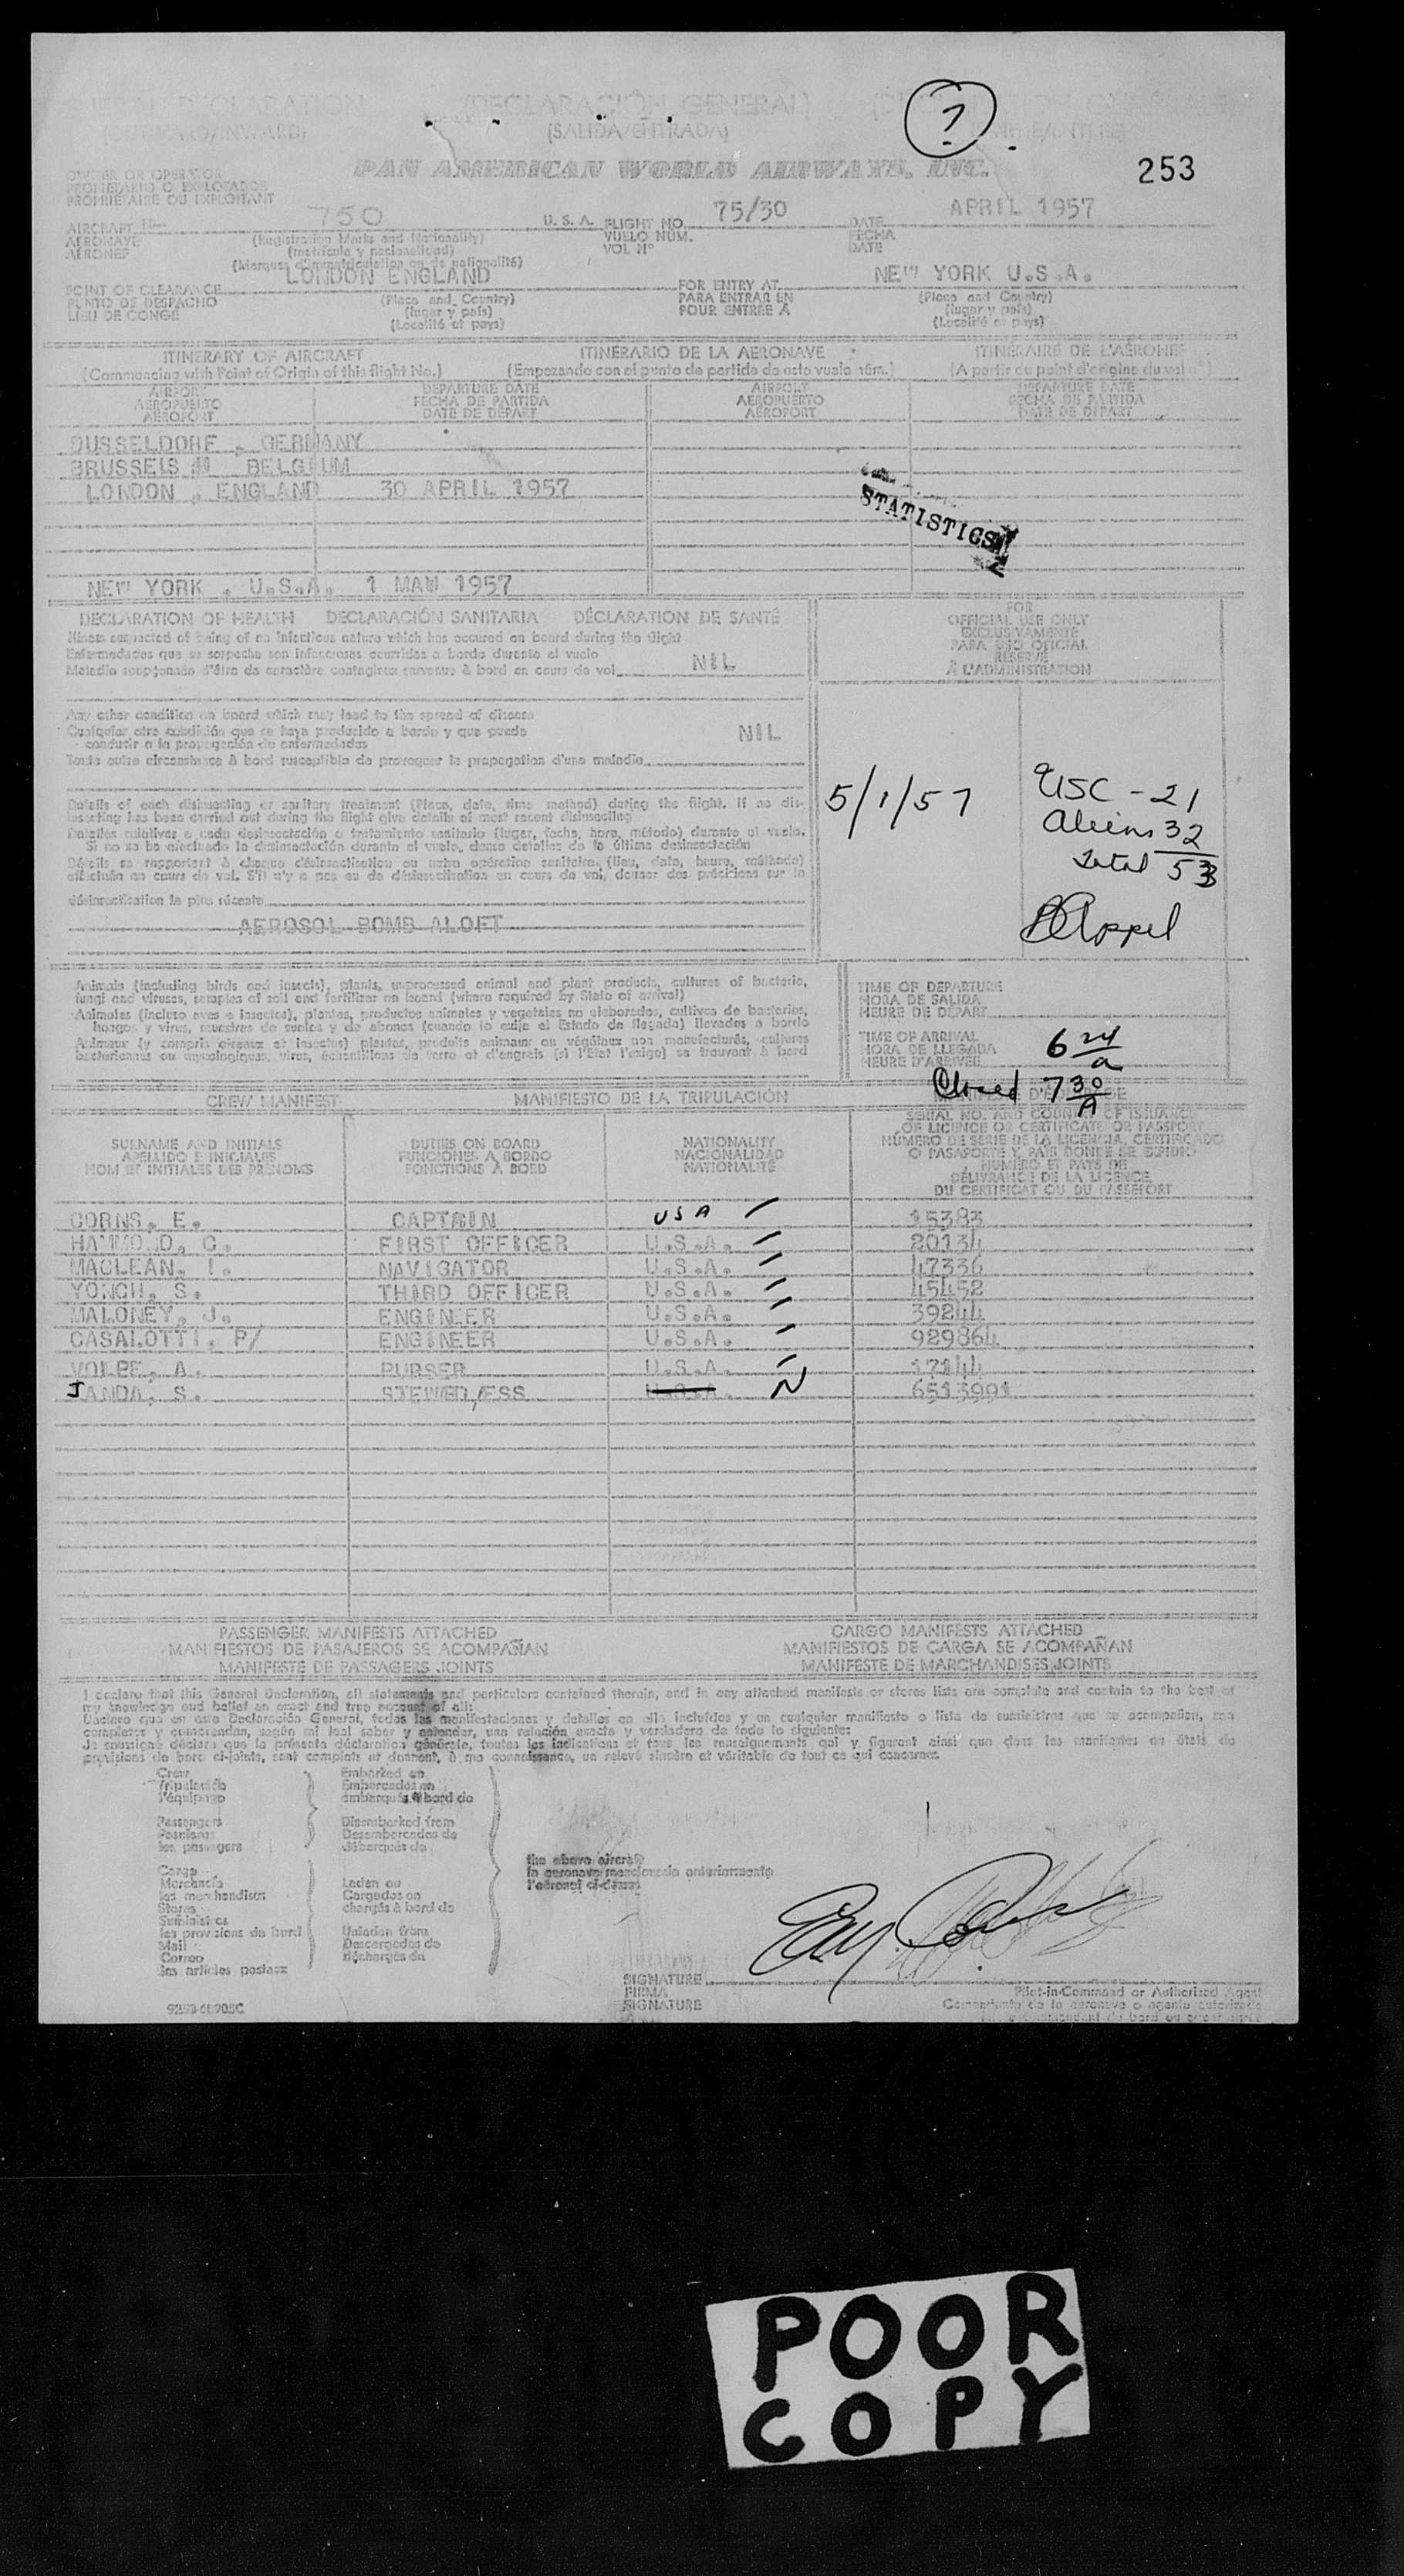 GENERAL DECLARATION (DECLARACIÓN GENERAL)
(OUTWARD/INWARD) (SALIDA/ENTRADA)
253
PAN AMERICAN WORLD AIRWAYS, INC.
OWNER OR OPERATOR
PROPIETARIO O EXPLOTADOR
PROPRIÉTAIRE OU EXPLOITANT
750 U. S. A. FLIGHT NO. 75/30 DATE APRIL 1957
AIRCRAFT N—
AERONAVE (Registration Marks and Nationality) VUELO NÚM. FECHA
AÉRONEF (matrícula y nacionalidad) VOL Nº DATE
(Marques d'immatriculation et de nationalité)
LONDON ENGLAND NEW YORK U.S.A.
POINT OF CLEARANCE (Place and Country) FOR ENTRY AT (Place and Country)
PUNTO DE DESPACHO (lugar y país) PARA ENTRAR EN (lugar y país)
LIEU DE CONGÉ (Localité et pays) POUR ENTRÉE À (Localité et pays)
ITINERARY OF AIRCRAFT ITINERARIO DE LA AERONAVE ITINÉRAIRE DE L'AÉRONEF
(Commencing with Point of Origin of this flight No.) (Empezando con el punto de partida de este vuelo núm.) (A partir du point d'origine du vol n°)
AIRPORT DEPARTURE DATE AIRPORT DEPARTURE DATE
AEROPUERTO FECHA DE PARTIDA AEROPUERTO FECHA DE PARTIDA
AÉROPORT DATE DE DÉPART AÉROPORT DATE DE DÉPART
DUSSELDORF , GERMANY
BRUSSELS BELGIUM
LONDON , ENGLAND 30 APRIL 1957
STATISTICS
NEW YORK , U.S.A. 1 MAW 1957
DECLARATION OF HEALTH DECLARACIÓN SANITARIA DÉCLARATION DE SANTÉ
Illness suspected of being of an infectious nature which has occured on board during the flight
Enfermedades que se sospecha son infecciosas ocurridas a bordo durante el vuelo
Maladie soupçonnée d'être de caractère contagieux survenue à bord en cours de vol NIL
FOR
OFFICIAL USE ONLY
EXCLUSIVAMENTE
PARA USO OFICIAL
RÉSERVÉ
À L'ADMINISTRATION
Any other condition on board which may lead to the spread of disease
Cualquier otra condición que se haya producido a bordo y que pueda NIL
conducir a la propagación de enfermedades
Toute autre circonstance à bord susceptible de provoquer la propagation d'une maladie
5/1/57
USC - 21
Aliens 32
Total 53
Details of each disinsecting or sanitary treatment (Place, date, time method) during the flight. If no dis-
insecting has been carried out during the flight give details of most recent disinsecting
Detalles relativos a cada desinsectación o tratamiento sanitario (lugar, fecha, hora, método) durante el vuelo.
Si no se ha efectuado la desinsectación durante el vuelo, dense detalles de la última desinsectación
Détails se rapportant à chaque désinsectisation ou autre opération sanitaire (lieu, date, heure, méthode)
effectuée en cours de vol. S'il n'y a pas eu de désinsectisation en cours de vol, donner des précisions sur la
désinsectisation la plus récente
AEROSOL BOMB ALOFT
Appel
Animals (including birds and insects), plants, unprocessed animal and plant products, cultures of bacteria,
fungi and viruses, samples of soil and fertilizer on board (where required by State of arrival)
Animales (incluso aves e insectos), plantas, productos animales y vegetales no elaborados, cultivos de bacterias,
hongos y virus, muestras de suelos y de abonos (cuando lo exija el Estado de llegada) llevados a bordo
Animaux (y compris oiseaux et insectes) plantes, produits animaux ou végétaux non manufacturés, cultures
bactériennes ou mycologiques, virus, échantillons de terre et d'engrais (si l'État l'exige) se trouvant à bord
TIME OF DEPARTURE
HORA DE SALIDA
HEURE DE DÉPART
TIME OF ARRIVAL
HORA DE LLEGADA 6 24 a
HEURE D'ARRIVÉE
Closed 7 30 A
CREW MANIFEST MANIFIESTO DE LA TRIPULACIÓN
SURNAME AND INITIALS
APELLIDO E INICIALES
NOM ET INITIALES DES PRÉNOMS
DUTIES ON BOARD
FUNCIONES A BORDO
FONCTIONS À BORD
NATIONALITY
NACIONALIDAD
NATIONALITÉ
SERIAL NO. AND COUNTRY OF ISSUANCE
OF LICENCE OR CERTIFICATE OR PASSPORT
NÚMERO DE SERIE DE LA LICENCIA, CERTIFICADO
O PASAPORTE Y PAÍS DONDE SE EXPIDIÓ
NUMÉRO ET PAYS DE
DÉLIVRANCE DE LA LICENCE
DU CERTIFICAT OU DU PASSEPORT
CORNS, E. CAPTAIN USA 15383
HAMMOND, C. FIRST OFFICER U.S.A. 20134
MACLEAN, I. NAVIGATOR U.S.A. 47336
YONCH, S. THIRD OFFICER U.S.A. 45452
MALONEY, J. ENGINEER U.S.A. 39244
CASALOTTI, P/ ENGINEER U.S.A. 929864
VOLPE, A. PURSER U.S.A. 17144
JANDA, S. STEWRD/ESS U.S.A. N 6513991
PASSENGER MANIFESTS ATTACHED CARGO MANIFESTS ATTACHED
MANIFIESTOS DE PASAJEROS SE ACOMPAÑAN MANIFIESTOS DE CARGA SE ACOMPAÑAN
MANIFESTE DE PASSAGERS JOINTS MANIFESTE DE MARCHANDISES JOINTS
I declare that this General Declaration, all statements and particulars contained therein, and in any attached manifests or stores lists are complete and contain to the best of
my knowledge and belief an exact and true account of all:
Declaro que en esta Declaración General, todas las manifestaciones y detalles en ella incluídos y en cualquier manifiesto o lista de suministros que se acompañen, son
completos y comprenden, según mi leal saber y entender, una relación exacta y verdadera de todo lo siguiente:
Je soussigné déclare que la présente déclaration générale, toutes les indications et tous les renseignements qui y figurent ainsi que dans les manifestes ou états de
provisions de bord ci-joints, sont complets et donnent, à ma connaissance, un relevé sincère et véritable de tout ce qui concerne:
Crew Embarked on
Tripulación Embarcados en
l'équipage embarqués à bord de
Passengers Disembarked from
Pasajeros Desembarcados de
les passagers débarqués de
the above aircraft
la aeronave mencionada anteriormente
l'aéronef ci-dessus
Cargo
Mercancía Laden on
les marchandises Cargados en
Stores chargés à bord de
Suministros
les provisions de bord Unladen from
Mail Descargados de
Correo déchargés de
les articles postaux
SIGNATURE
FIRMA
SIGNATURE
Pilot-in-Command or Authorized Agent
Comandante de la aeronave o agente autorizado
POOR
COPY